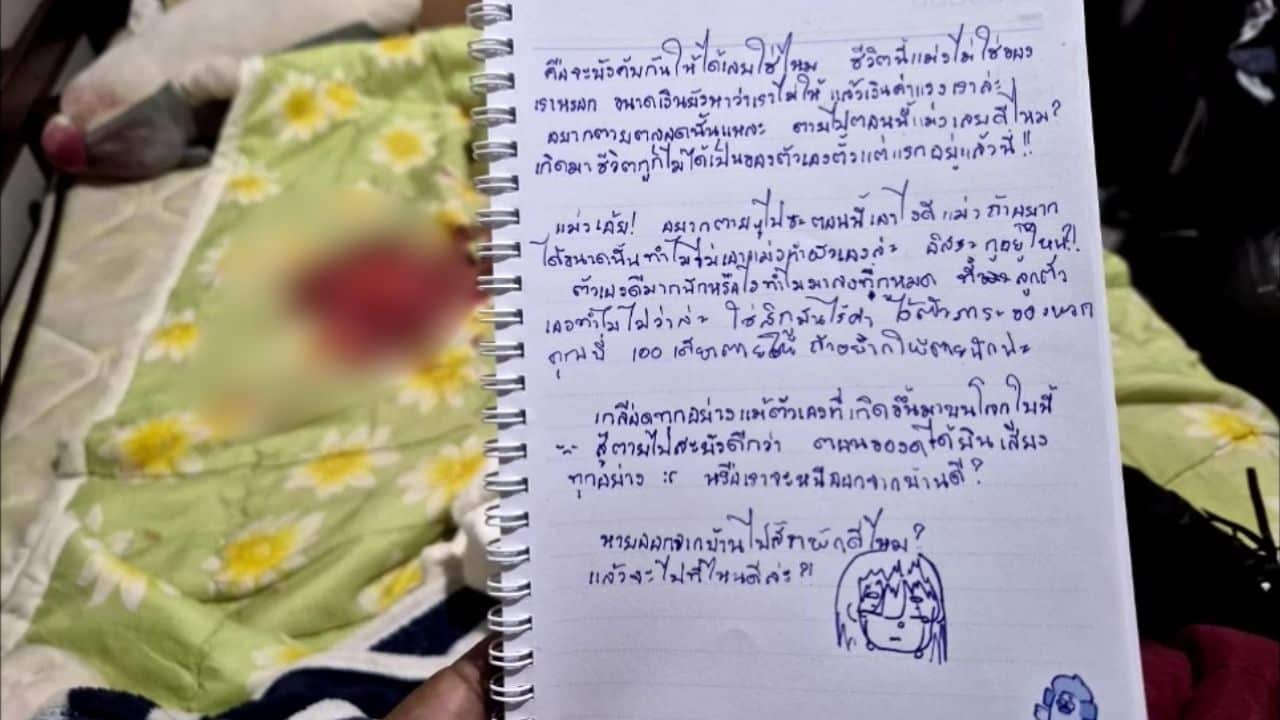 คือจะบังคับกันให้ได้เลยใช่ไหม ชีวิตนี้แม่งไม่ใช่ของ
เราหรอก ขนาดเงินยังหาว่าเราไม่ให้ แล้วเงินค่าแรงเราล่ะ
อยากตายตลอดนั้นแหละ ตายไปตอนนี้แม่งเลยดีไหม?
เกิดมาชีวิตกูก็ไม่ได้เป็นของตัวเองตั้งแต่แรกอยู่แล้วนี่!!
แม่งเอ้ย! อยากตายๆไปซะตอนนี้เอาไงดี แม่งถ้าอยาก
ได้ขนาดนั้นทำไมไม่เอาแม่งทำตัวเองล่ะ อิสระกูอยู่ไหน?!
ตัวเองดีมากนักหรือไงทำไมมาลงที่กูหมด ที ลูกตัว
เองทำไมไม่ว่าล่ะ ใช่สิกูมันไร้ค่า ภาระของพวก
คุณนี่ เออ เดียตายให้ ถ้าอยากให้ตายนักน่ะ
เกลียดทุกอย่างแม้ตัวเองที่เกิดขึ้นมาบนโลกใบนี้
สู้ตายไปสะยังดีกว่า ได้ยินเสียง
ทุกอย่าง :( หรือเราจะหนีออกจากบ้านดี?
หายออกจากบ้านไปสักพักดีไหม?
แล้วจะไปที่ไหนดีล่ะ?!